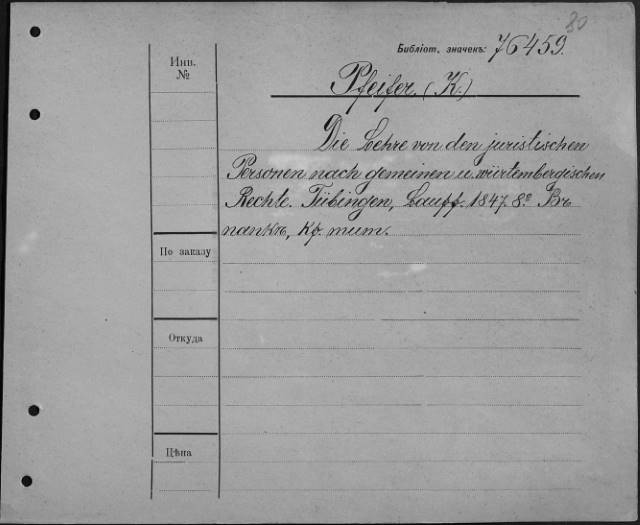 80
Библіот. значекъ: 76459.
Инв.
№
Pfeifer. (K.)
Die Lehre von den juristischen
Personen nach gemeinen u. würtembergischen
Rechte. Tübingen, Lauff. 1847. 8º. Въ
папкѣ, Кр. тит.
По заказу
Откуда
Цѣна